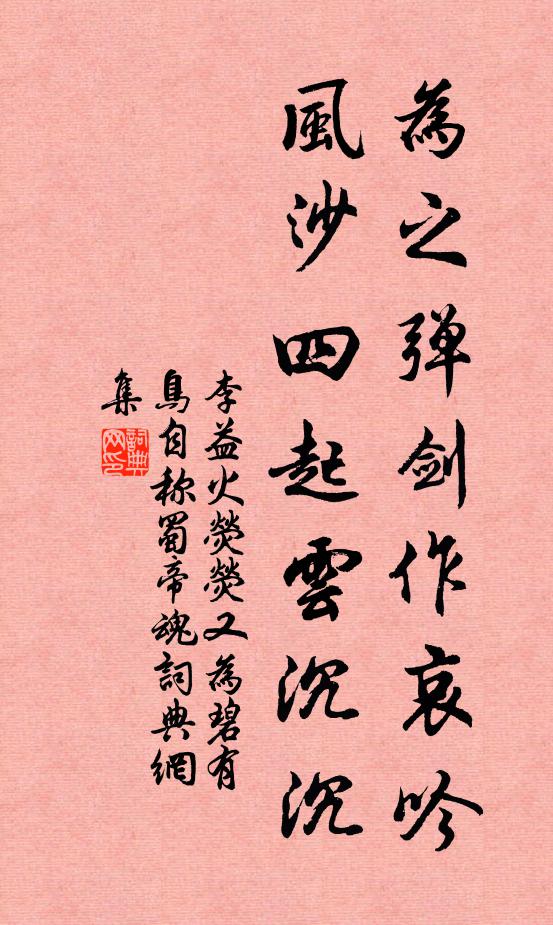 為之弾劍作哀吟
風沙四起雲沉沉
李益火熒熒又為碧有
鳥自称蜀帝魂詞典網
集
詞典
网印